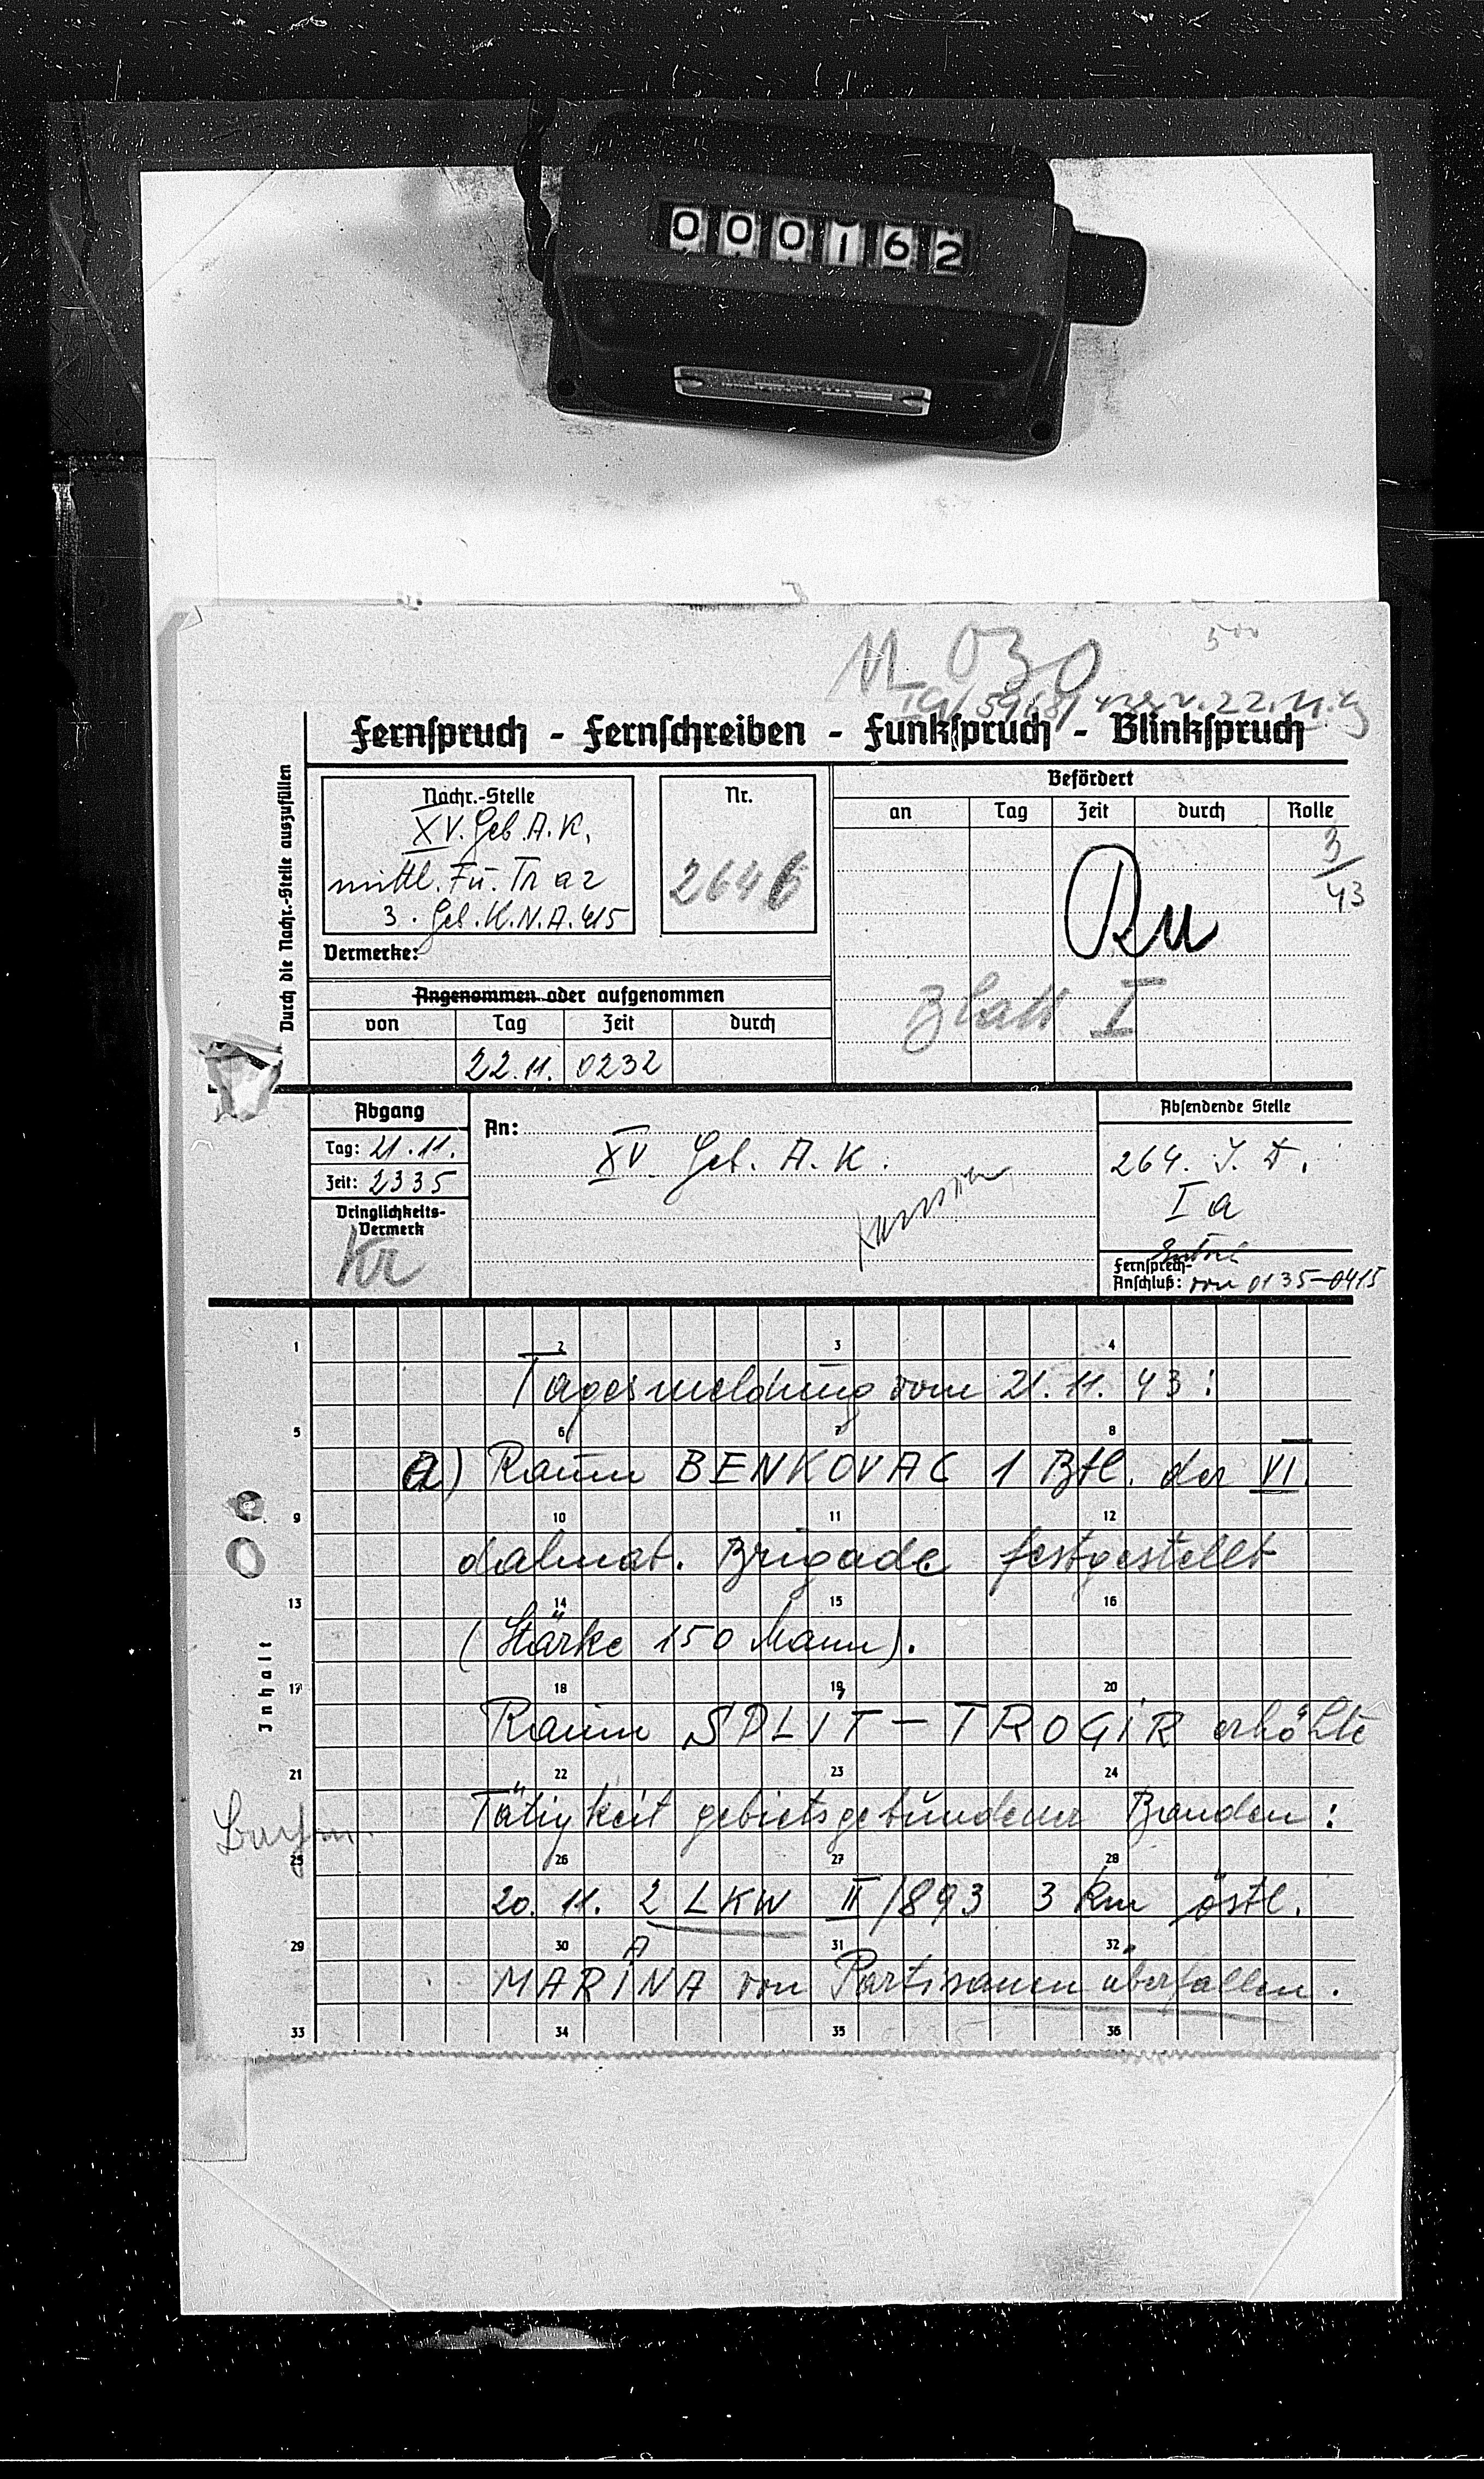 000162
5⁰⁰
M 030
Fernspruch - Fernschreiben - Funkspruch - Blinkspruch
Durch die Nachr.-Stelle auszufüllen
Nachr.-Stelle
XV. Geb. A. K.
mittl. Fu. Tr a 2
3. Geb. K. N. A. 415
Nr.
2646
Vermerke:
Befördert
an Tag Zeit durch Rolle
3/43
Ru
Blatt I
Angenommen oder aufgenommen
von Tag Zeit durch
22.11. 0232
Abgang
Tag: 21.11.
Zeit: 2335
Dringlichkeits-
Vermerk
Kr
An:
XV. Geb. A. K.
Absendende Stelle
264. I. D.
I a
Fernsprech-
Anschluß: von 0135-0415
Inhalt
1 2 3 4
Tagesmeldung vom 21. 11. 43:
5 6 7 8
a) Raum BENKOVAC 1 Btl. der VI.
9 10 11 12
dalmat. Brigade festgestellt
13 14 15 16
(Stärke 150 Mann).
17 18 19 20
Raum SPLIT – TROGIR erhöhte
21 22 23 24
Tätigkeit gebietsgebundener Banden:
25 26 27 28
20. 11. 2 LKW II/893 3 km östl.
29 30 31 32
A
MARINA von Partisanen überfallen.
33 34 35 36